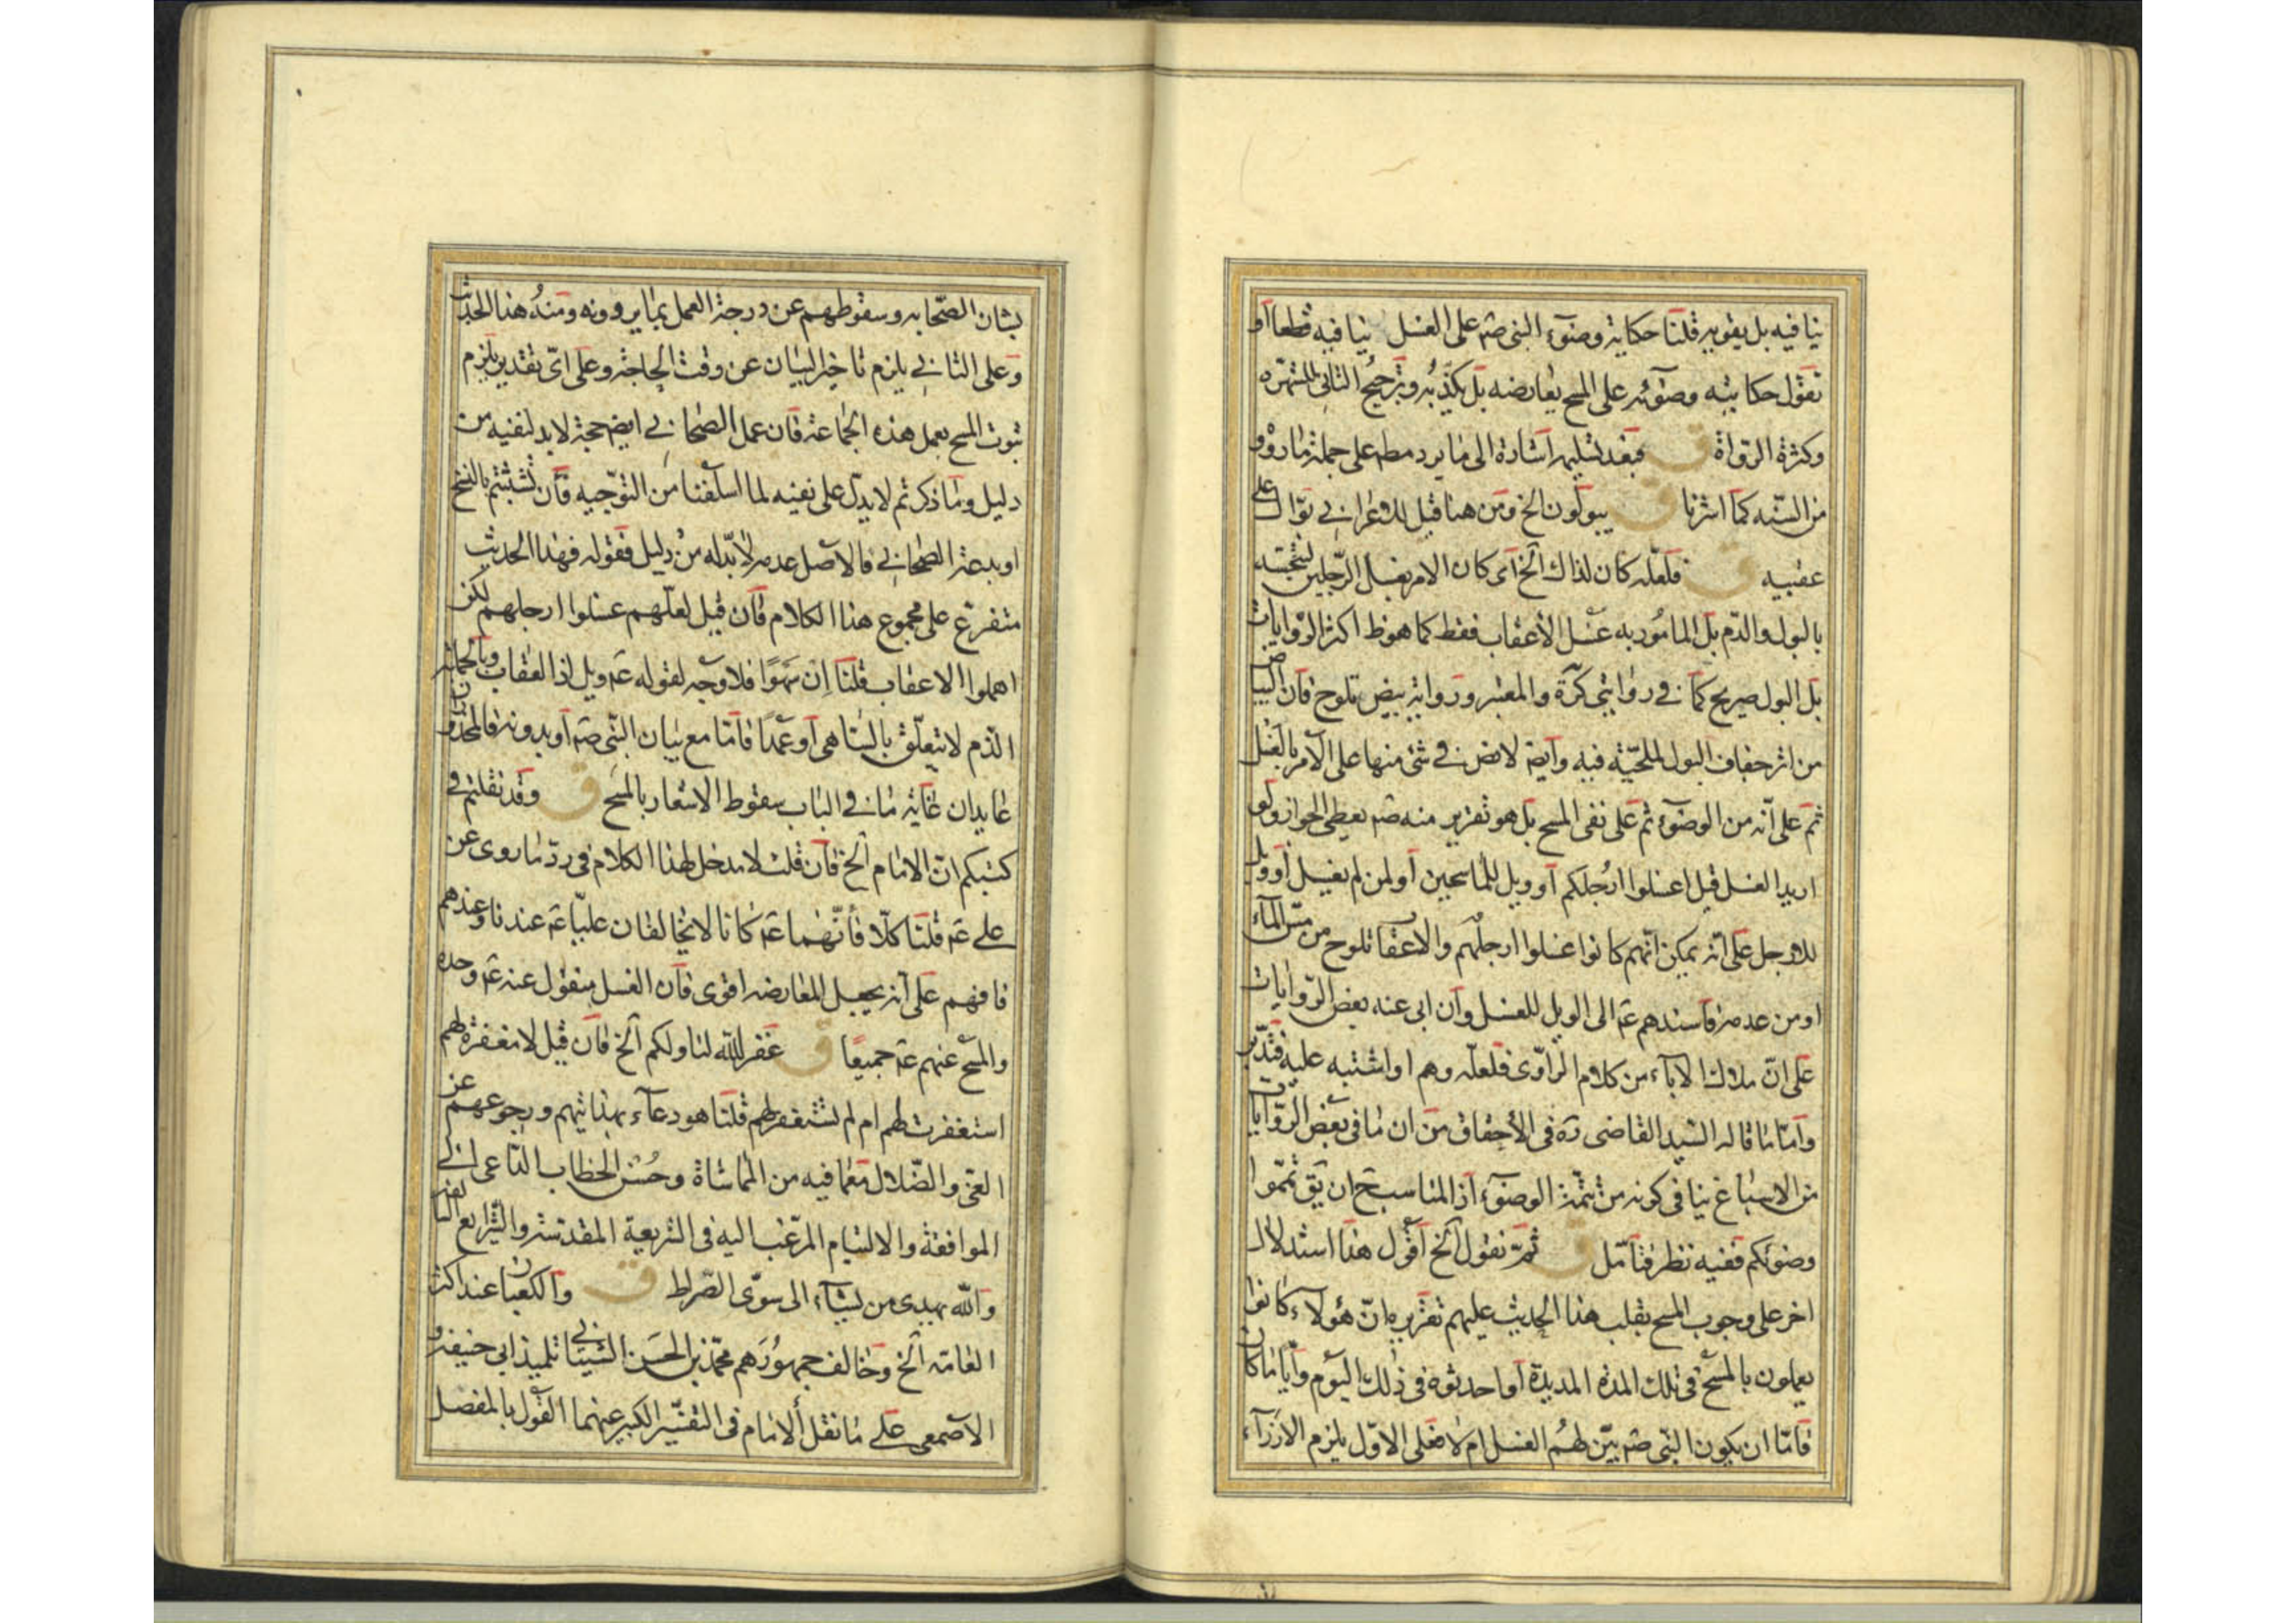 ينافيه بل يقويه قلنا حكاية وضوء النبي صم على الغسل ينافيه قطعا او
نقول حكايته وضوئه على المسح يعارضه بل يكذبه وترجيح الثاني للشهره
وكثرة الرواة ق فبعد تسليم اشارة الى ما يرد مط على جملة ما رووه
من السنه كما اشرنا ق يبولون الخ ومن هنا قيل للاعرابي بوال على
عقبيه ق فلعله كان لذاك الخ اى كان الامر بغسل الرجلين لنجسته
بالبول والدم بل المامور به غسل الاعقاب فقط كما هو ظ اكثر الروايات
بل البول صريح كما في روايتي كرة والمعتبر ورواية بيض تلوح فان البياض
من اثر جفاف البول للملحيّة فيه وايض لا نص في شئ منها على الامر بالغسل
ثم على انه من الوضوء ثم على نفى المسح بل هو تقرير منه صم يعطى الجواز ولو
اريد الغسل قيل اغسلوا ارجلكم او ويل للماسحين او لمن لم يغسل او ويل
للارجل على انه يمكن انهم كانوا غسلوا ارجلهم والاعقاب تلوح من مس الماء
او من عدمه فاسندهم عم الى الويل للغسل وان ابى عنه بعض الروايات
على ان ملاك الاباء من كلام الراوى فلعله وهم او اشتبه عليه فتدبر
واما ما قاله السيد القاضى ره فى الاحقاق من ان ما فى بعض الروايات
من الاسباغ ينافى كونه من تتمة الوضوء اذ المناسب ح ان يق تمموا
وضوئكم ففيه نظر فتامل ق ثم نقول الخ اقول هذا استدلال
اخر على وجوب المسح بقلب هذا الحديث عليهم تقريره ان هؤلاء كانوا
يعملون بالمسح فى تلك المدة المديدة او احدثوه فى ذلك اليوم وايا ما كان
فاما ان يكون النبى صم بين لهم الغسل ام لا فعلى الاول يلزم الازراء
بشان الصحابه وسقوطهم عن درجة العمل بما يروونه ومنه هذا الحديث
وعلى الثاني يلزم تاخير البيان عن وقت الحاجة وعلى اى تقدير يلزم
ثبوت المسح بعمل هذه الجماعة فان عمل الصحابي ايض حجة لا بد لنفيه من
دليل وما ذكرتم لا يدل على نفيه لما اسلفنا من التوجيه فان تشبثتم بالنسخ
او بدعة الصحابي فالاصل عدمه لا بد له من دليل فقوله فهذا الحديث
متفرع على مجموع هذا الكلام فان قيل لعلهم غسلوا ارجلهم لكن
اهملوا الاعقاب قلنا ان سهوا فلا وجه لقوله عم ويل اذ العقاب وبالجملة
الذم لا يتعلق بالساهى او عمدا فاما مع بيان النبى صم او بدونه فالمحذوران
عايدان غاية ما فى الباب سقوط الاشعار بالمسح ق وقد نقلتم فى
كتبكم ان الامام الخ فان قلت لا مدخل لهذا الكلام فى رد ما روى عن
على عم قلنا كلا فانهما عم كانا لا يخالفان عليا عم عندنا وعندهم
فافهم على انه يجعل المعارضه اقوى فان الغسل منقول عنه عم وحده
والمسح عنهم عم جميعا ق غفر الله لنا ولكم الخ فان قيل لا مغفرة لهم
استغفرت لهم ام لم تستغفر لهم قلنا هو دعاء بهدايتهم ورجوعهم عن
الغى والضلال مع ما فيه من المماشاة وحسن الخطاب الداعى الى
الموافقة والالتيام المرغب اليه فى الشريعة المقدسة والشرايع السالفة
والله يهدى من يشاء الى سوى الصراط ق والكعبان عند اكثر
العامة الخ وخالف جمهورهم محمد بن الحسن الشيباني تلميذ ابى حنيفة و
الاصمعى على ما نقل الامام فى التفسير الكبير عنهما القول بالمفصل